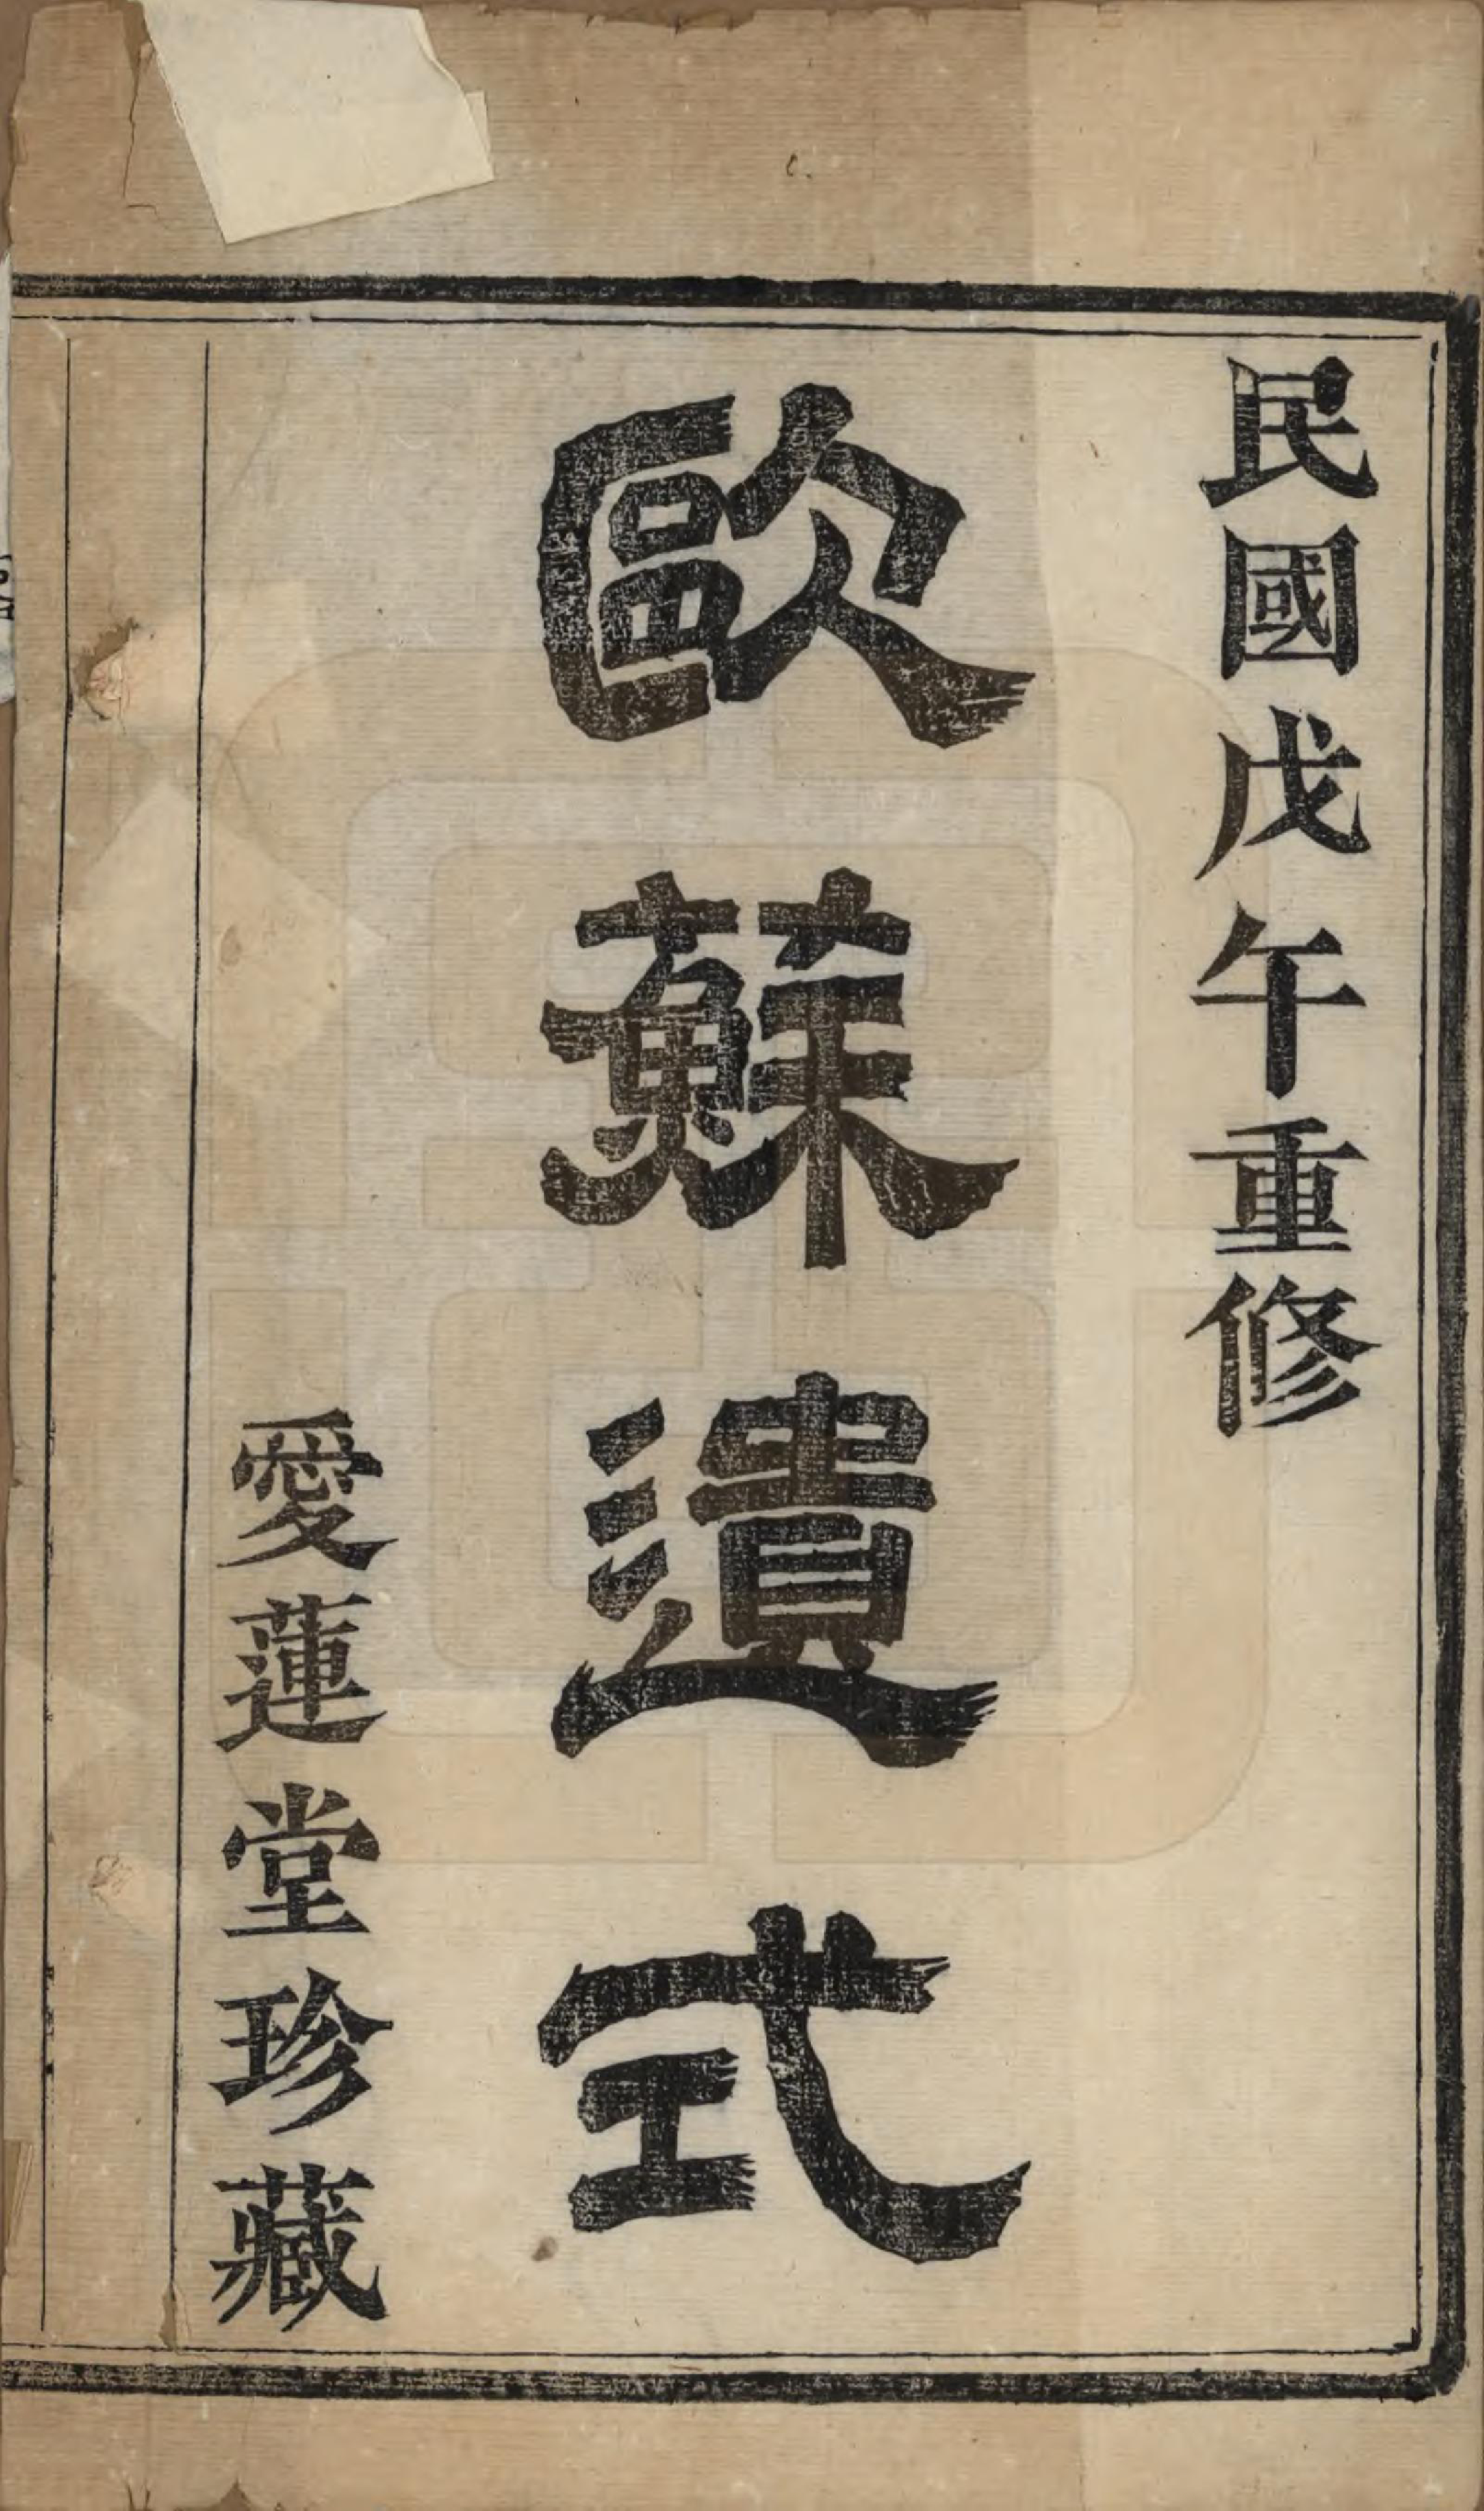 民國戊午重修
歐蘇遺式
愛蓮堂珍藏